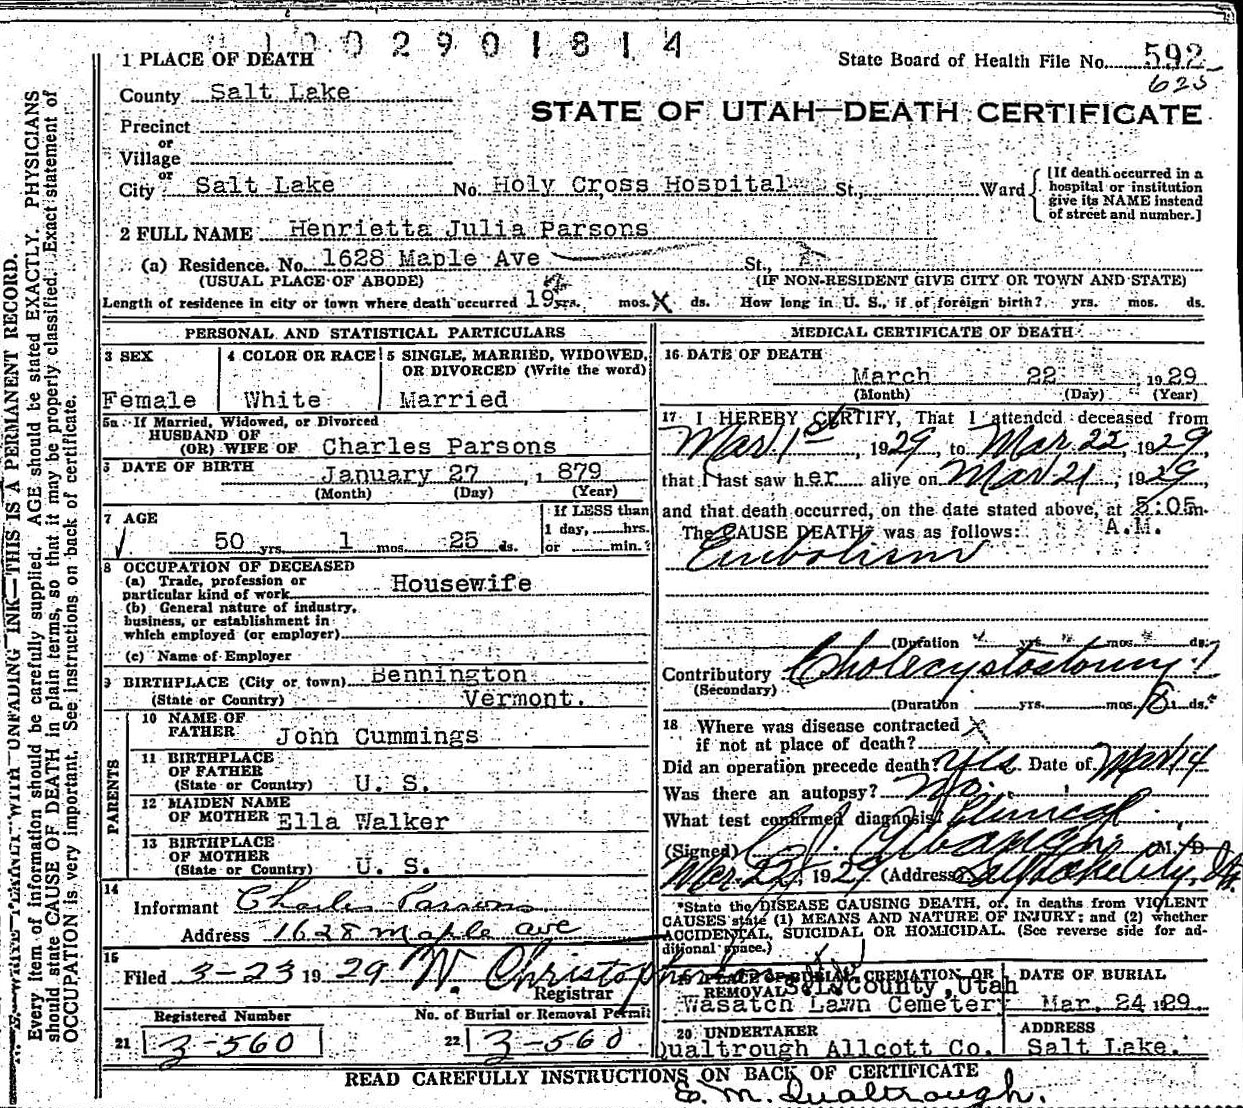 1002901814
1 PLACE OF DEATH
State Board of Health File No. 592
625
County Salt Lake
STATE OF UTAH—DEATH CERTIFICATE
Precinct
or
Village
or
City Salt Lake No. Holy Cross Hospital St., Ward
[If death occurred in a hospital or institution give its NAME instead of street and number.]
2 FULL NAME Henrietta Julia Parsons
(a) Residence. No. 1628 Maple Ave St.,
(USUAL PLACE OF ABODE) (IF NON-RESIDENT GIVE CITY OR TOWN AND STATE)
Length of residence in city or town where death occurred 19 yrs. mos. X ds. How long in U. S., if of foreign birth? yrs. mos. ds.
PERSONAL AND STATISTICAL PARTICULARS
3 SEX 4 COLOR OR RACE 5 SINGLE, MARRIED, WIDOWED, OR DIVORCED (Write the word)
Female White Married
5a If Married, Widowed, or Divorced
HUSBAND OF
(OR) WIFE OF Charles Parsons
6 DATE OF BIRTH
January 27, 1879
(Month) (Day) (Year)
7 AGE
If LESS than
1 day, hrs.
50 yrs. 1 mos. 25 ds. or min.?
8 OCCUPATION OF DECEASED
(a) Trade, profession or
particular kind of work Housewife
(b) General nature of industry,
business, or establishment in
which employed (or employer)
(c) Name of Employer
9 BIRTHPLACE (City or town) Bennington
(State or Country) Vermont.
PARENTS
10 NAME OF
FATHER John Cummings
11 BIRTHPLACE
OF FATHER
(State or Country) U. S.
12 MAIDEN NAME
OF MOTHER Ella Walker
13 BIRTHPLACE
OF MOTHER
(State or Country) U. S.
14
Informant Charles Parsons
Address 1628 Maple Ave
15
Filed 3-23 1929 W. Christopherson
Registrar
Registered Number No. of Burial or Removal Permit
21 3-560 22 3-560
MEDICAL CERTIFICATE OF DEATH
16 DATE OF DEATH
March 22 1929
(Month) (Day) (Year)
17 I HEREBY CERTIFY, That I attended deceased from
Mar. 1st, 1929, to Mar. 22, 1929,
that I last saw her alive on Mar 21, 1929,
and that death occurred, on the date stated above, at 5:05 m.
A.M.
The CAUSE DEATH* was as follows:
Embolism
(Duration yrs. mos. ds.
Contributory Cholecystostomy
(Secondary)
(Duration yrs. mos. 8 ds.
18 Where was disease contracted
if not at place of death? X
Did an operation precede death? Yes Date of Mar 14
Was there an autopsy? No.
What test confirmed diagnosis? Clinical
(Signed) M. D.
Mar 22, 1929 (Address) Salt Lake City, Ut.
*State the DISEASE CAUSING DEATH, or, in deaths from VIOLENT
CAUSES state (1) MEANS AND NATURE OF INJURY; and (2) whether
ACCIDENTAL, SUICIDAL OR HOMICIDAL. (See reverse side for ad-
ditional space.)
19 PLACE OF BURIAL, CREMATION, OR REMOVAL DATE OF BURIAL
S.L. County, Utah
Wasatch Lawn Cemetery Mar. 24 1929
20 UNDERTAKER ADDRESS
Qualtrough Allcott Co. Salt Lake.
READ CAREFULLY INSTRUCTIONS ON BACK OF CERTIFICATE
E. M. Qualtrough.
Every item of information should be carefully supplied. AGE should be stated EXACTLY. PHYSICIANS
should state CAUSE OF DEATH in plain terms, so that it may be properly classified. Exact statement of
OCCUPATION is very important. See instructions on back of certificate.
WITH UNFADING INK—THIS IS A PERMANENT RECORD.